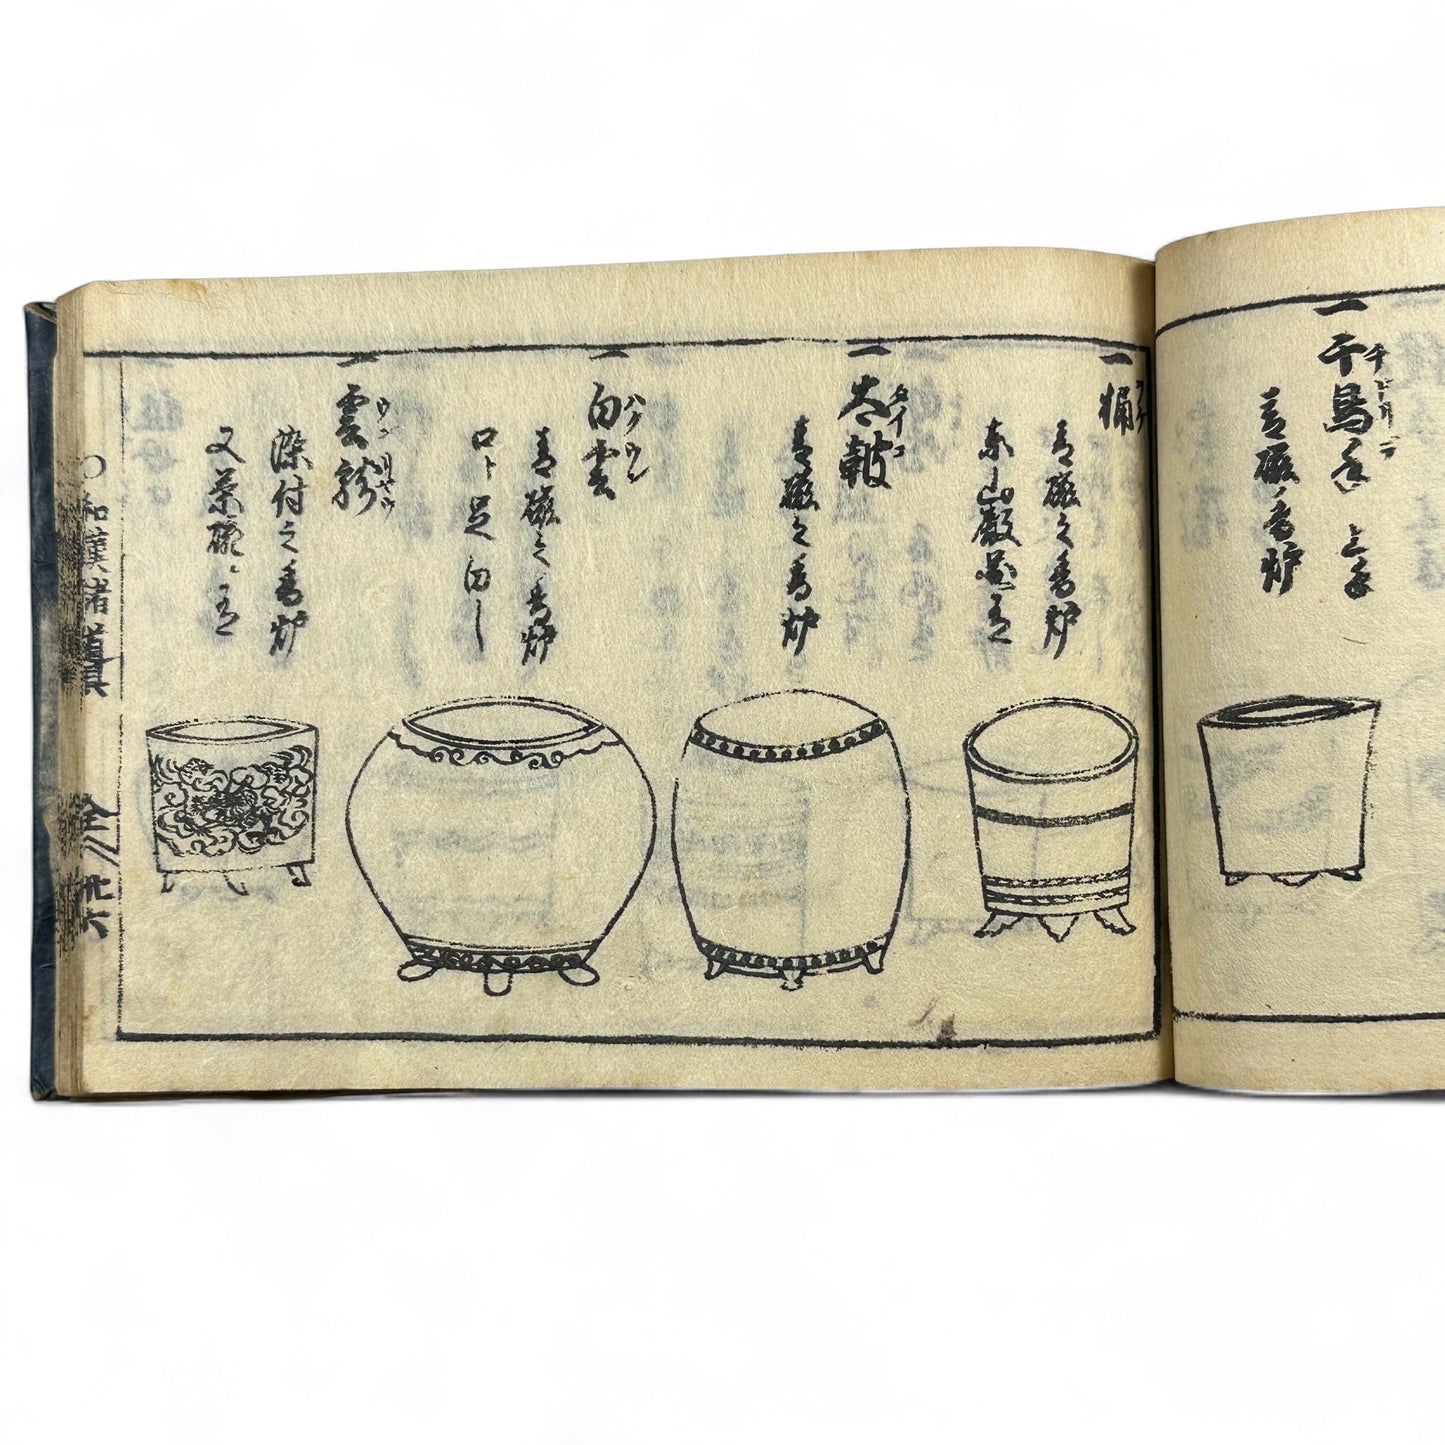 一 千鳥手 上手
チドリデ
青磁ノ香炉
一 桶
ヲケ
青磁之香炉
東山殿
一 太皷
タイコ
青磁之香炉
一 白雲
ハクウン
青磁之香炉
口ト足白し
一 雲龍
ウンリヤウ
染付之香炉
又茶碗ニ有
○和漢諸道具